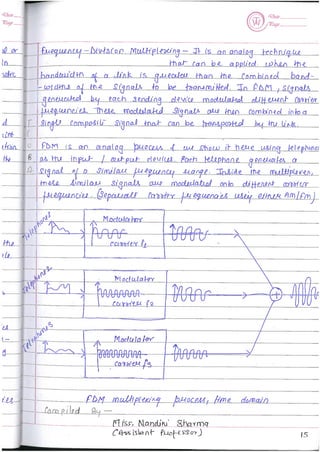 Frequency-Division Multiplexing - It is an analog technique
that can be applied when the
bandwidth of a link is greater than the combined band-
-widths of the signals to be transmitted. In FDM, signals
generated by each sending device modulated different carrier
frequencies. These modulated signals are then combined into a
single composite signal that can be transported by the link.
FDM is an analog process & we show it here using telephones
as the input / output devices. Each telephone generates a
signal of a similar frequency range. Inside the multiplexer,
these similar signals are modulated onto different carrier
frequencies. (Separate carrier frequencies using either AM/FM)
Telephone1
Modulator
carrier f1
Telephone2
Modulator
carrier f2
+
Telephone3
Modulator
carrier f3
FDM multiplexing process, time domain
Compiled By -
Miss. Nandini Sharma
(Assistant Professor)
15